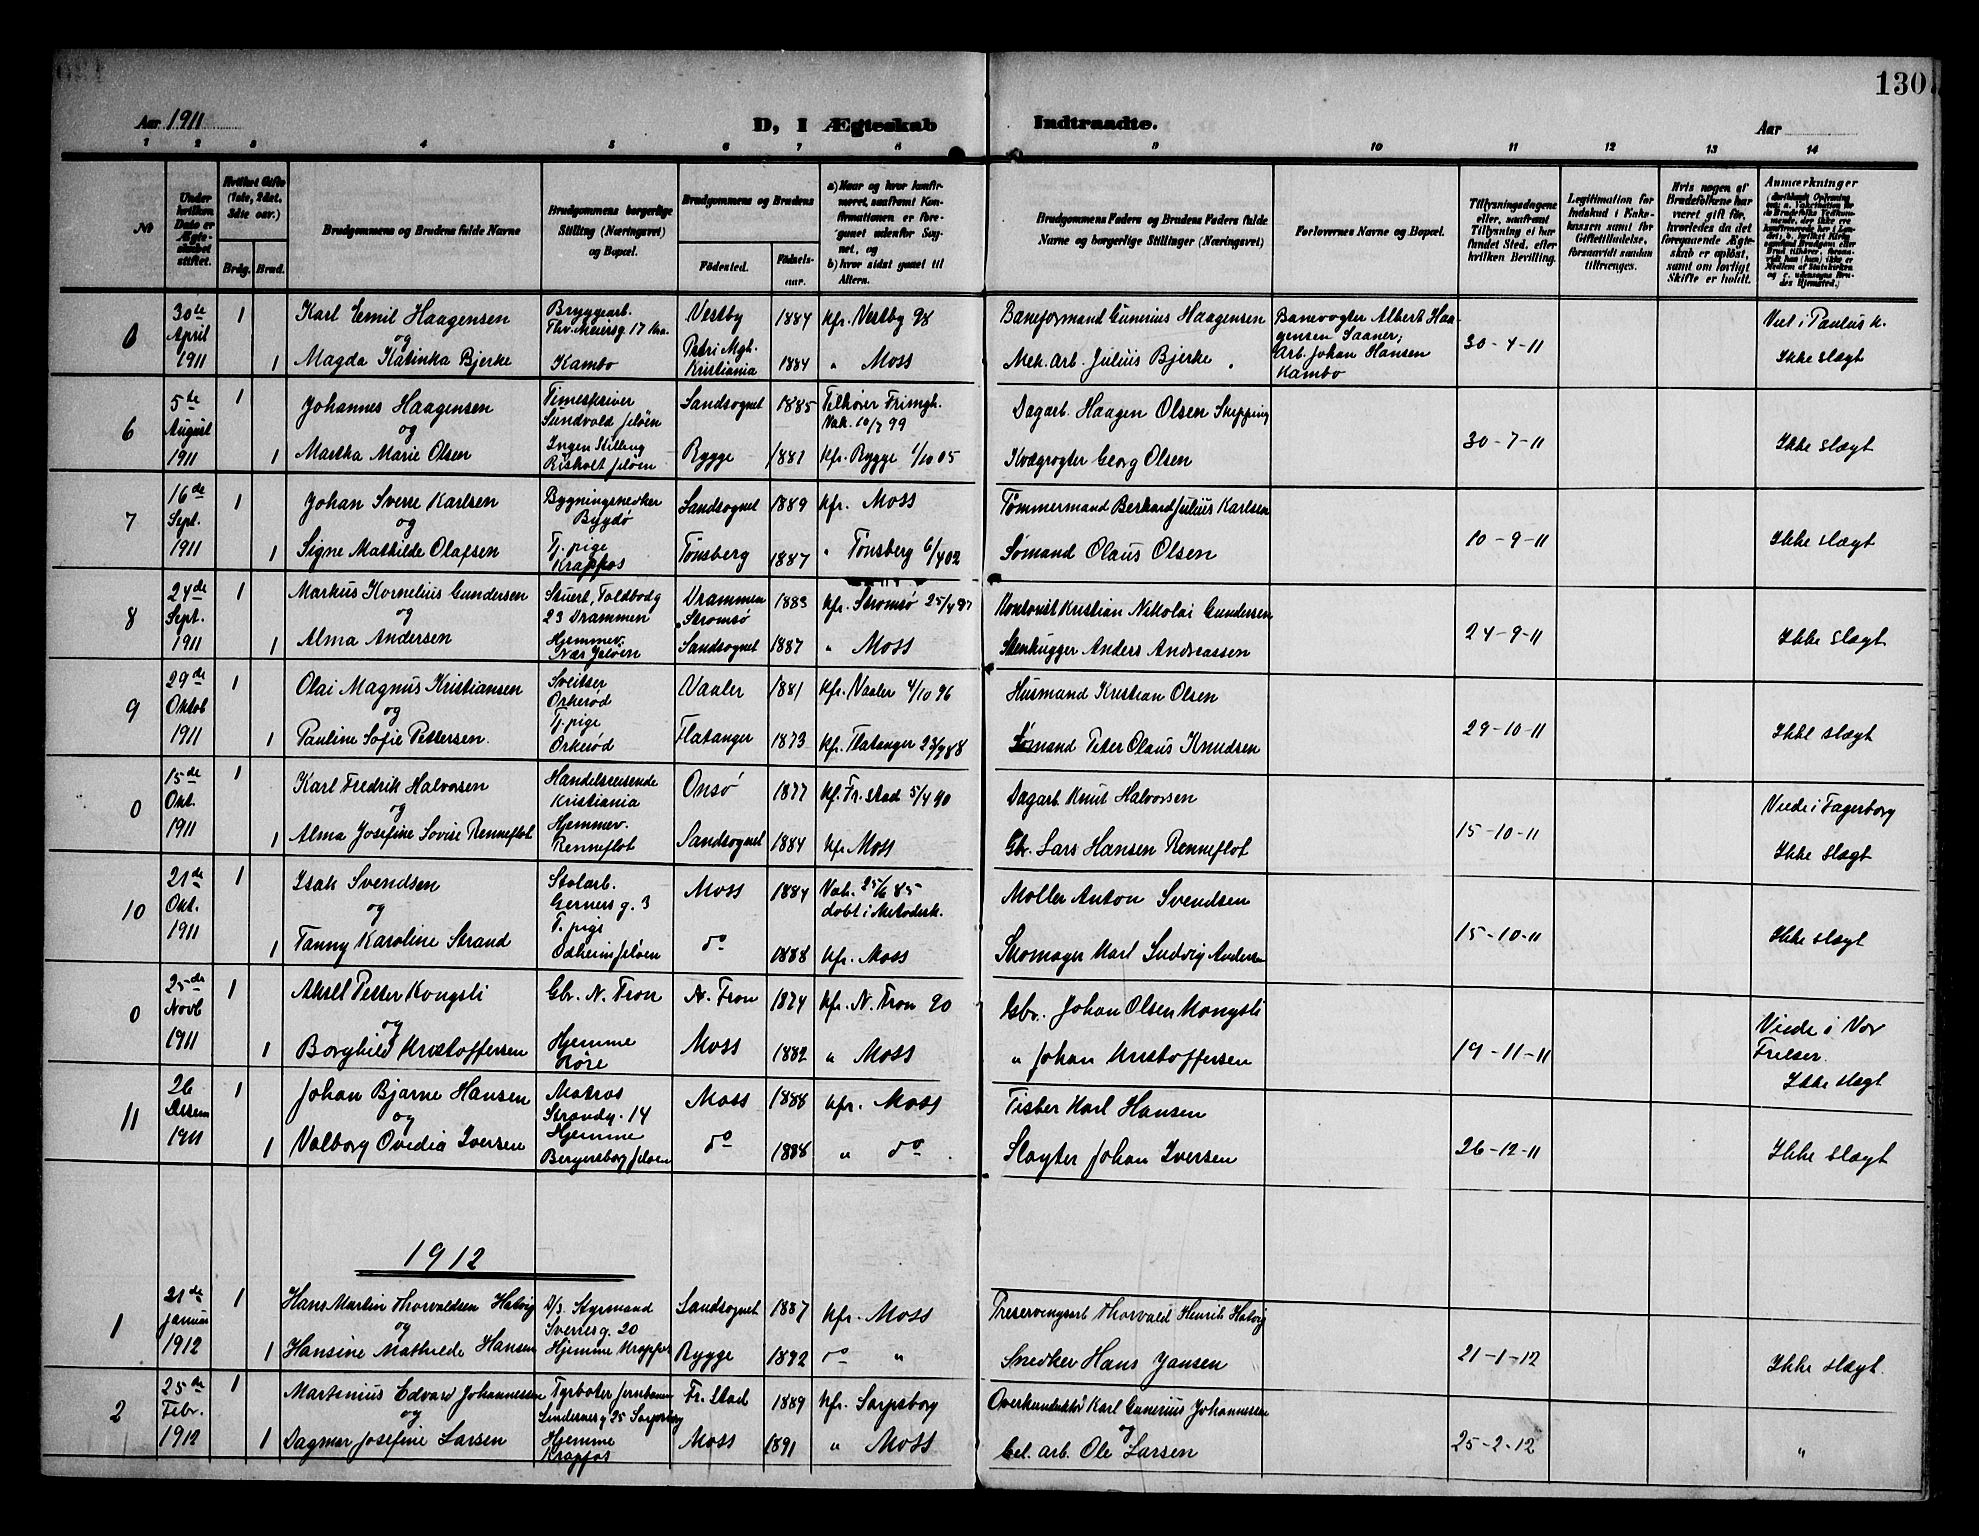 130
Aar 1911
D, I Ægteskab Indtraadte.
Aar
1 2 3 4 5 6 7 8 9 10 11 12 13 14
№
Under hvilken Dato er Ægteskabet stiftet.
Hvilket Gifte (1ste, 2det, 3die osv.)
Brdg. Brud.
Brudgommens og Brudens fulde Navne
Brudgommens borgerlige Stilling (Næringsvei) og Bopæl.
Brudgommens og Brudens
Fødested. Fødselsaar.
a) Naar og hvor konfirmeret, saafremt Konfirmationen er foregaaet udenfor Sognet, og
b) hvor sidst gaaet til Alters.
Brudgommens Faders og Brudens Faders fulde Navne og borgerlige Stillinger (Næringsvei)
Forlovernes Navne og Bopæl.
Tillysningsdagene eller, saafremt Tillysning ei har fundet Sted, efter hvilken Bevilling.
Legitimation for Indskud i Enkekassen samt for Giftetilladelse, forsaavidt saadan tiltrænges.
Hvis nogen af Brudefolkene har været gift før, hvorledes da det foregaaende Ægteskab er opløst, samt om lovligt Skifte er holdt.
Anmærkninger
0 30de April 1911
1 Karl Emil Haagensen Bryggearb. Thv. Meiersg. 17 Kra. Vestby 1884 kfr. Vestby 98 Baneformand Gunerius Haagensen
og
1 Magda Katinka Bjerke Kambo Petri Mgh. Kristiania 1884 " Moss Mek. Arb. Julius Bjerke
Banevogter Albert Haagensen Saaner; Arb. Johan Hansen Kambo
30-4-11
Viet i Paulus k.
Ikke slægt
6 5te August 1911
1 Johannes Haagensen Timeskriver Sundvold Jeløen Sandsognet 1885 Tilhører Frimgh. Vak. 10/7 99 Dagarb. Haagen Olsen Skipping
og
1 Martha Marie Olsen Ingen Stilling Risholt Jeløen Rygge 1887 kfr. Rygge 1/10 05 Kvægrøgter Georg Olsen
30-7-11
Ikke slægt
7 16de Sept. 1911
1 Johan Sverre Karlsen Bygningssnedker Bygdø Sandsognet 1889 kfr. Moss Tømmermand Berhard Julius Karlsen
og
1 Signe Mathilde Olafsen Tj. pige Krapfos Tønsberg 1887 " Tønsberg 6/4 02 Sømand Olaus Olsen
10-9-11
Ikke slægt
8 24de Sept. 1911
1 Markus Kornelius Gundersen Stuert, Toldbodg 23 Drammen Drammen Strømsø 1883 kfr. Strømsø 25/4 97 Kontorist Kristian Nikolai Gundersen
og
1 Alma Andersen Hjemmev. Næs Jeløen Sandsognet 1887 " Moss Stenhugger Anders Andreassen
24-9-11
Ikke slægt
9 29de Oktob 1911
1 Olai Magnus Kristiansen Sveitser Orkerød Vaaler 1881 kfr. Vaaler 4/10 96 Husmand Kristian Olsen
og
1 Pauline Sofie Pettersen Tj. pige Orkerød Flatanger 1873 kfr. Flatanger 23/9 88 Sømand Peter Olaus Knudsen
29-10-11
Ikke slægt
0 15de Okt. 1911
1 Karl Fredrik Halvorsen Handelsreisende Kristiania Onsø 1877 kf. Fr.stad 5/4 90 Dagarb Knut Halvorsen
og
1 Alma Josefine Lovise Renneflot Hjemmev. Renneflot Sandsognet 1884 kfr Moss Gbr. Lars Hansen Renneflot
15-10-11
Viede i Fagerborg
Ikke slægt
10 21de Okt. 1911
1 Isak Svendsen Stolarb. Gernersg. 3 Moss 1884 Vak. 25/6 85 døbt i Metodistk. Møller Anton Svendsen
og
1 Fanny Karoline Strand T. pige Odheim Jeløen do 1888 kfr. Moss Skomager Karl Ludvig Andersen
15-10-11
Ikke slægt
0 25de Novb 1911
1 Aksel Petter Kongsli Gbr. N. Fron N. Fron 1874 kfr. N. Fron 90 Gbr. Johan Olsen Kongsli
og
1 Borghild Kristoffersen Hjemme Røre Moss 1882 " Moss " Johan Kristoffersen
19-11-11
Viede i Vor Frelser.
Ikke slægt
11 26 Desem 1911
1 Johan Bjarne Hansen Matros Strandg. 14 Moss 1888 kfr. Moss Fisker Karl Hansen
og
1 Valborg Ovedia Iversen Hjemme Bergersborg Jeløen do 1888 " do Slagter Johan Iversen
26-12-11
Ikke slægt
1912
1 21de Januar 1912
1 Hans Martin Thorvaldsen Hatvig D/s. Styrmand Sverresg. 20 Sandsognet 1887 kfr. Moss Preservengsarb Thorvald Henrik Hatvig
og
1 Hansine Mathilde Hansen Hjemme Krapfos Rygge 1892 do " Snedker Hans Jansen
21-1-12
Ikke slægt.
2 25de Febr. 1912
1 Martinius Edvard Johannessen Fyrbøter Jernbanen Lindemesg 25 Sarpsborg Fr. Stad 1889 kfr. Sarpsborg Overkonduktør Karl Gunerius Johannessen
og
1 Dagmar Josefine Larsen Hjemme Krapfos Moss 1891 " Moss Cel. arb. Ole Larsen
25-2-12
"